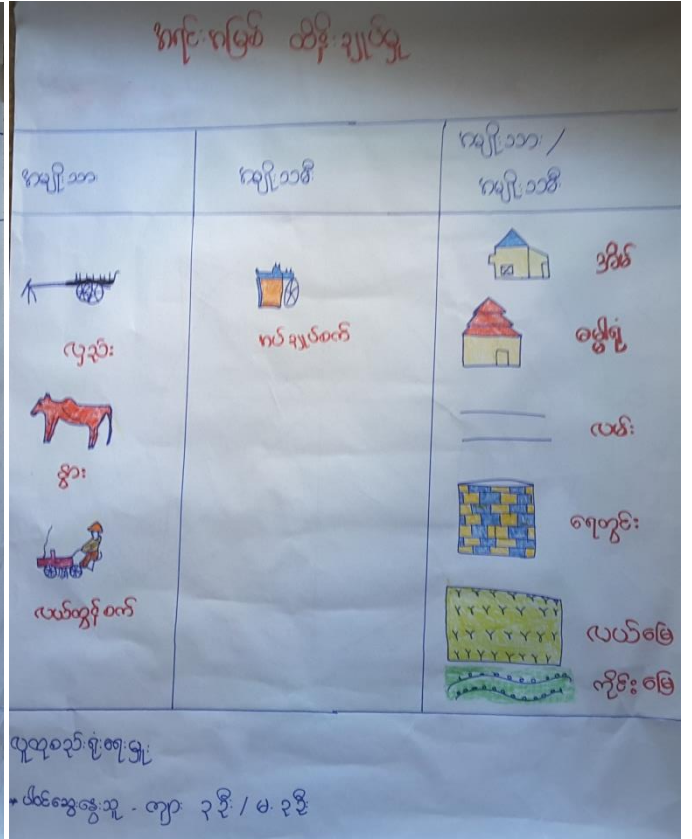 အရင်းအမြစ် ထိန်းချုပ်မှု
အမျိုးသား
အမျိုးသမီး
အမျိုးသား /
အမျိုးသမီး
လှည်း
နွား
လယ်ထွန်စက်
အပ်ချုပ်စက်
အိမ်
ဓမ္မာရုံ
လမ်း
ရေတွင်း
လယ်မြေ
ကိုင်းမြေ
လူထုစည်းရုံးရေးမှူး
ပါဝင်ဆွေးနွေးသူ - ကျား ၃ဦး / မ ၃ဦး